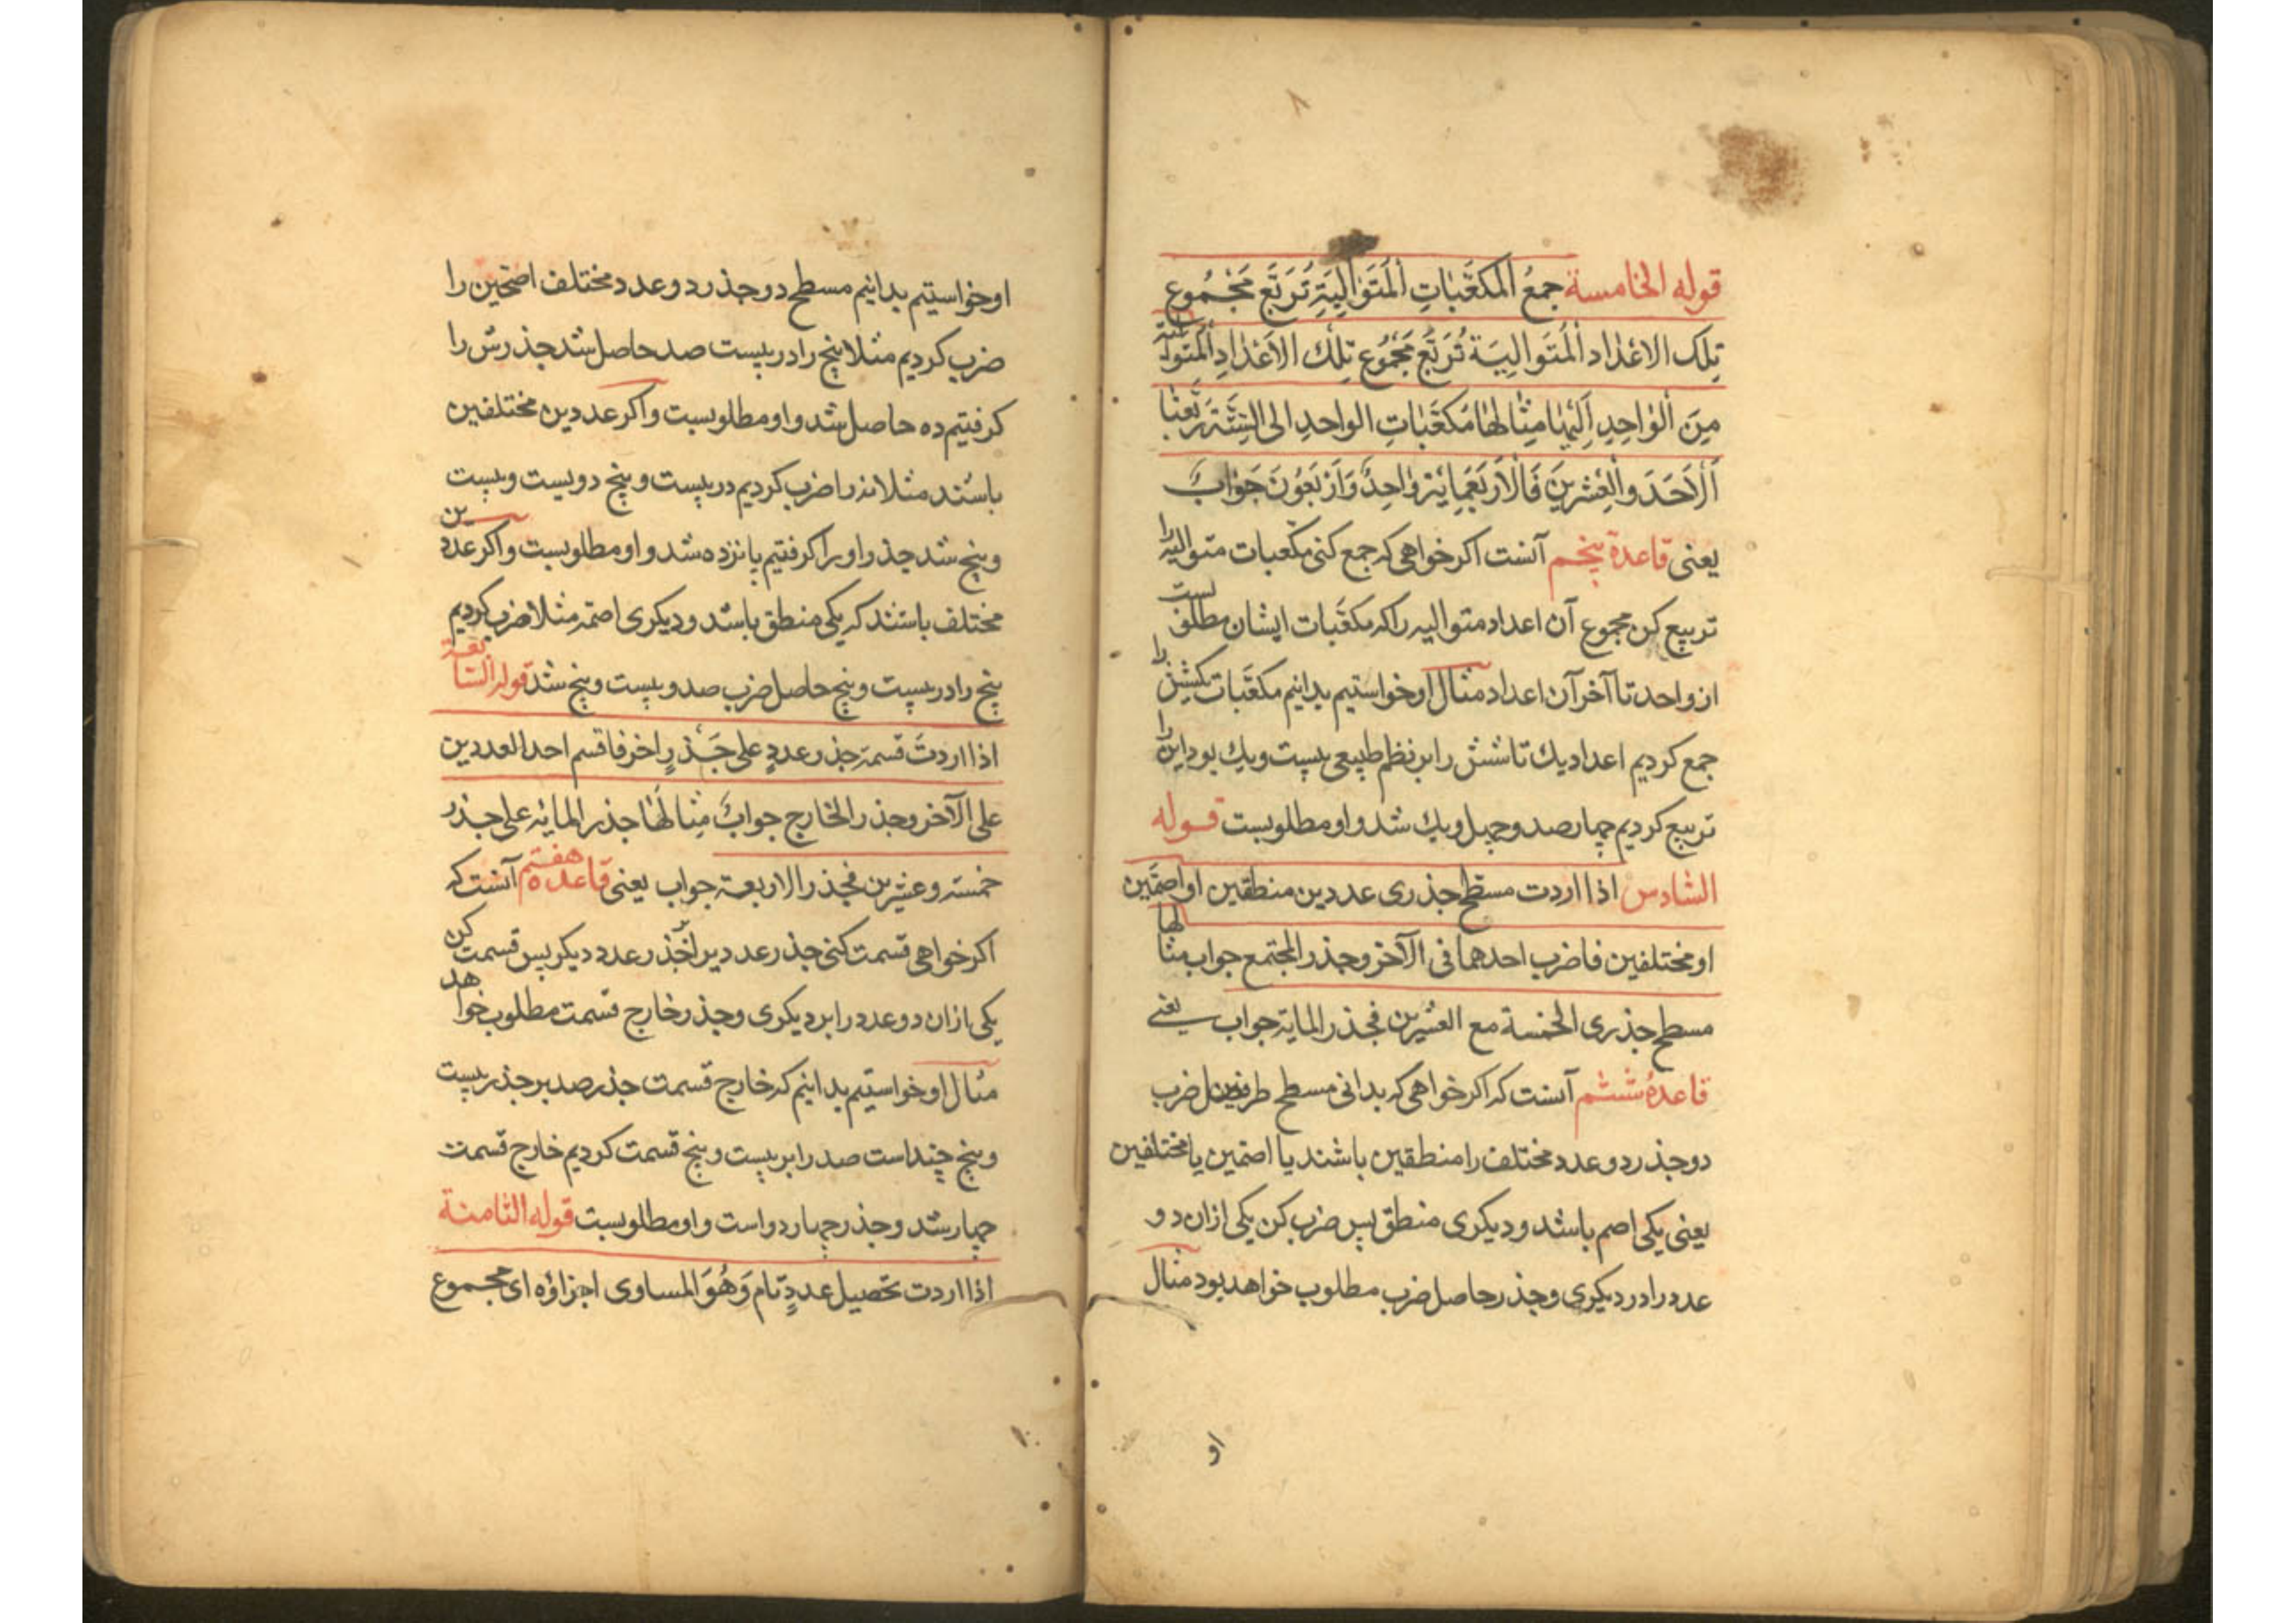 قوله الخامسة جمعُ المكعَّباتِ اَلمُتَوَالِیَةِ تُرَبّعَ مَجْمُوع
تِلک الاعْداد اَلمُتَوالِیَة تُرَبّعُ مَجْمُوع تِلْكَ الاَعْدَادِ اَلمُتَوالیة
مِنَ اَلوٰاحِدِ اِلَیْهٰا مِثٰالهٰا مُکعَّبٰاتِ الواحدِ الی السِتّة رَبَّعْنٰا
اَلْاَحَدَ والْعِشْرینَ فَالْاَرْبَعَمِایَة وٰاحِدٌ وَاَرْبَعُونَ جَوٰابٌ
یعنی قاعدۀ پنجم آنست اکر خواهی که جمع کنی مکعبات متوالیه را
تربیع کن مجموع آن اعداد متوالیه را که مکعَّبات ایشان مطلوبست
از واحد تا آخر آن اعداد مثال او خواستیم بدانیم مکعَّبات یکشش را
جمع کردیم اعداد یك تا شش را بر نظم طبیعی بیست ویك بود این را
تربیع کردیم چهار صد و چهل ویك شد و او مطلوبست قوله
السّادس اذا اردت مسطح جذری عددین منطقین او اصمّین
او مختلفین فاضرب احدهما فی الآخر وجذر المجتمع جواب مثالها
مسطح جذری الخمسة مع العشرین فجذر المایة جواب یعنی
قاعدۀ ششم آنست که اکر خواهی که بدانی مسطح ضرب
دو جذر دو عدد مختلف را منطقین باشند یا اصمین یا مختلفین
یعنی یکی اصم باشد و دیکری منطق پس ضرب کن یکی ازان دو
عدد را در دیکری و جذر حاصل ضرب مطلوب خواهد بود مثال
او
او خواستیم بدانیم مسطح دو جذر دو عدد مختلف اصمین را
ضرب کردیم مثلا پنج را در بیست صد حاصل شد جذرش را
کرفتیم ده حاصل شد و او مطلوبست و اکر عددین مختلفین
باشند مثلا نه را ضرب کردیم در بیست و پنج دویست و بیست
و پنج شد جذر او را کرفتیم پانزده شد و او مطلوبست و اکر عددین
مختلف باشند که یکی منطق باشد و دیکری اصمّ مثلا ضرب کردیم
پنج را در بیست و پنج حاصل ضرب صد و بیست و پنج شد قوله السّابعة
اذا اردتَ قسمة جذر عددٍ علی جَذرٍ اخر فاقسم احد العددین
علی الآخر وجذر الخارج جوابٌ مِثٰالهٰا جذر المایة علی جذر
خمسة وعشرین فجذر الاربعة جواب یعنی قاعده هفتم آنست که
اکر خواهی قسمت کنی جذر عدد دیکر پس قسمت کن
یکی ازان دو عدد را بر دیکری و جذر خارج قسمت مطلوب خواهد
مثال او خواستیم بدانیم که خارج قسمت جذر صد بر جذر بیست
و پنج چند است صد را بر بیست و پنج قسمت کردیم خارج قسمت
چهار شد و جذر چهار دو است و او مطلوبست قوله الثامنة
اذا اردت تحصیل عددٍ تام وَهُوَ المساوی اجزاؤه ای مجموع